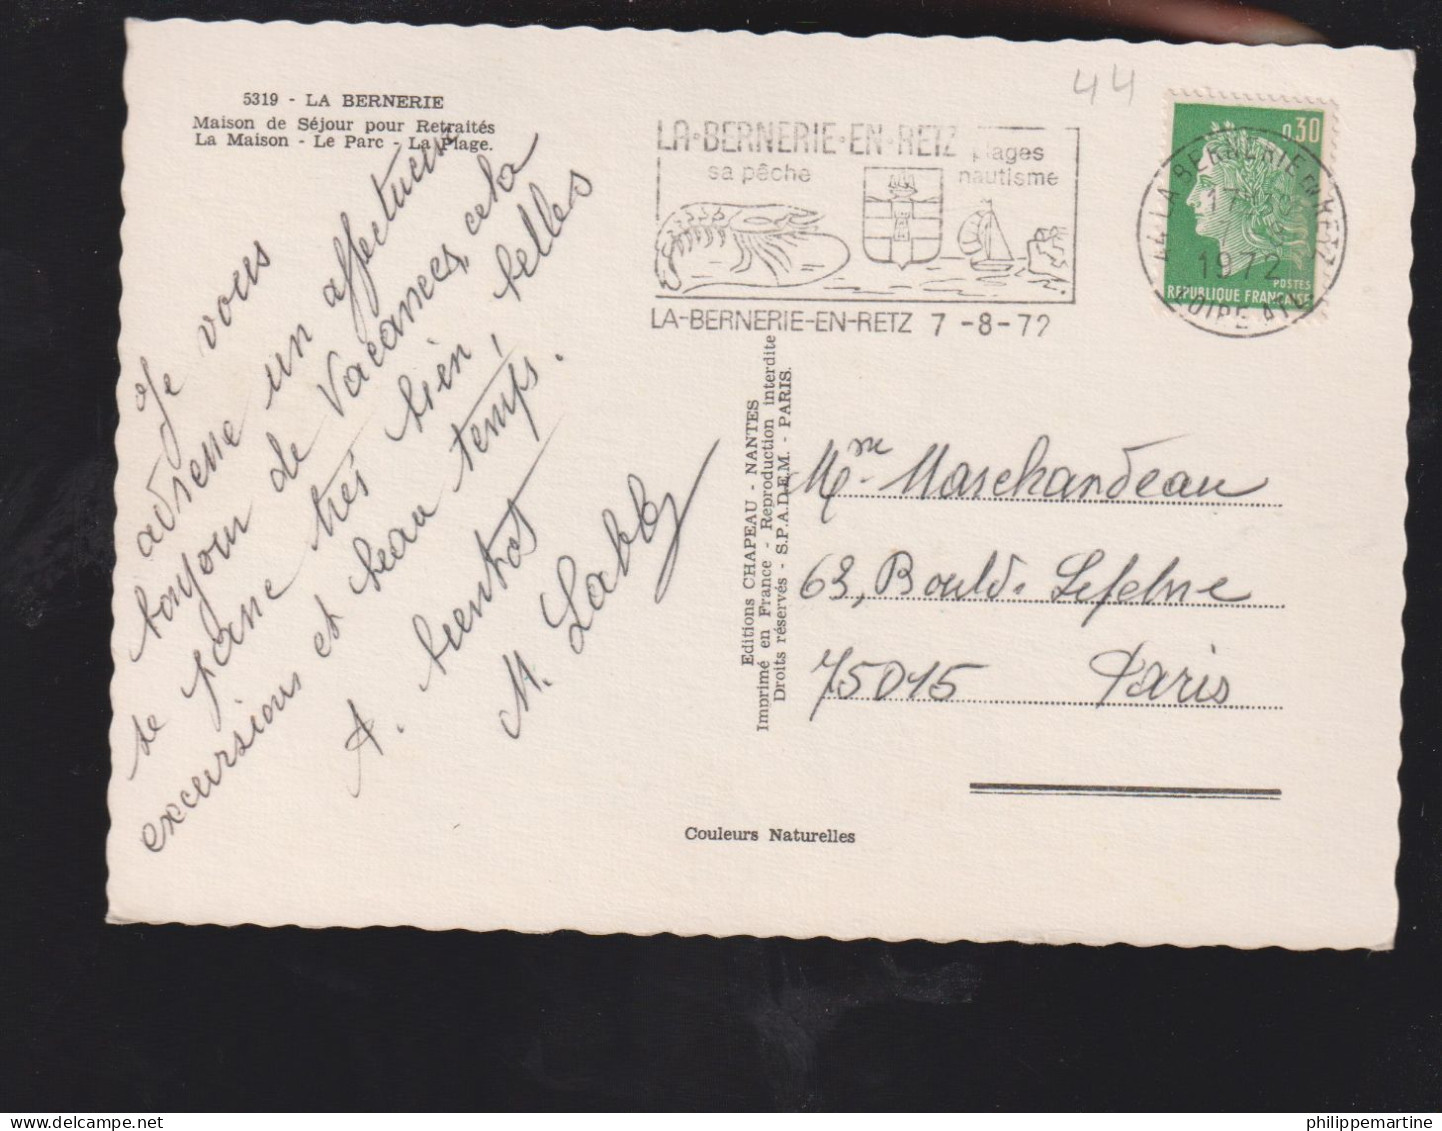 44
5319 - LA BERNERIE
Maison de Séjour pour Retraités
La Maison - Le Parc - La Plage.
LA·BERNERIE·EN·RETZ
sa pêche
plages
nautisme
LA-BERNERIE-EN-RETZ 7 -8-72
0,30
POSTES
REPUBLIQUE FRANÇAISE
44 LA BERNERIE EN RETZ
17
1972
Je vous
adresse un affectueux
bonjour de Vacances, cela
se passe très bien, belles
excursions et beau temps.
A. bientot
M. Labby
Editions CHAPEAU - NANTES
Imprimé en France - Reproduction interdite
Droits réservés - S.P.A.D.E.M. - PARIS.
Mme Marchandeau
63, Bould. Lefebvre
75015 Paris
Couleurs Naturelles
philippemartine